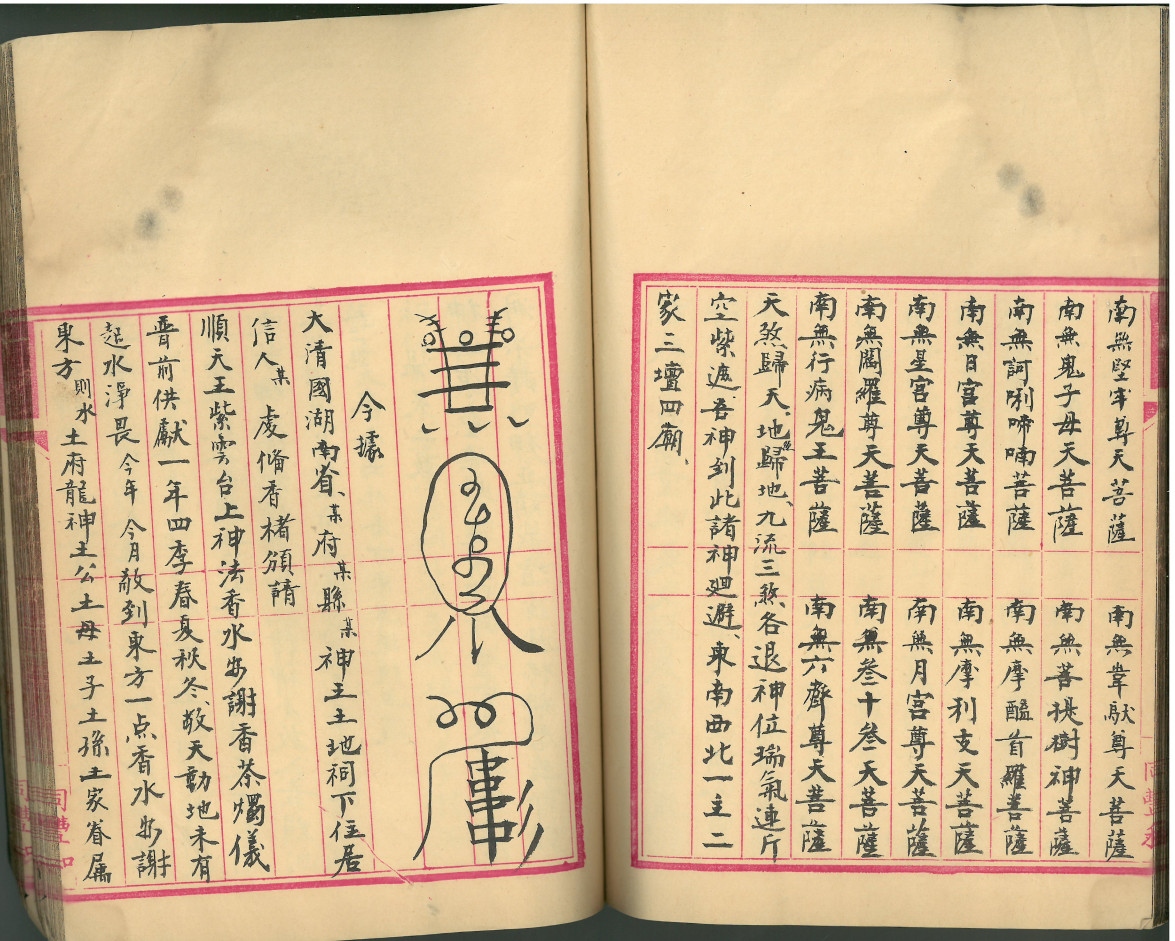 南無堅牢尊天菩薩 南無韋馱尊天菩薩
南無鬼子母天菩薩 南無菩提樹神菩薩
南無訶唎啼喃菩薩 南無摩醯首羅菩薩
南無日宮尊天菩薩 南無摩利支天菩薩
南無星宮尊天菩薩 南無月宮尊天菩薩
南無閻羅尊天菩薩 南無叁十叁天菩薩
南無行病鬼王菩薩 南無六齋尊天菩薩
天煞歸天、地煞歸地、九流三煞各退神位瑞氣連斤
空紫遮、吾神到此諸神廻避、東南西北一主二
家三壇四廟、
今據
大清國湖南省、某府某縣某神王土地祠下住居
信人某虔俻香楮頒請
順天王紫雲台上神法香水安謝香茶燭儀
晋前供献一年四季春夏秋冬、敬天動地未有
起水淨畏今年今月敬到東方一点香水安謝
東方則水土府龍神土公土母土子土孫土家眷属
同豐和